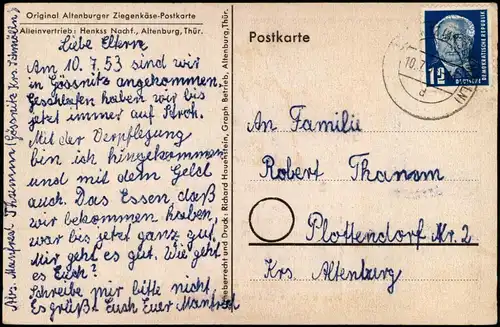 Original Altenburger Ziegenkäse-Postkarte
Alleinvertrieb: Henkss Nachf., Altenburg, Thür.
Liebe Eltern.
Am 10.7.53 sind wir
in Gössnitz angekommen.
Geschlafen haben wir bis
jetzt immer auf Stroh.
Mit der Verpflegung
bin ich hingekommen
und mit dem Geld
auch. Das Essen, daß
wir bekommen haben,
war bis jetzt ganz gut.
Mir geht es gut. Wie geht
es Euch?
Schreibe mir bitte nicht.
Es grüßt Euch Euer Manfred
Abs. Manfred Thamm (Gössnitz Krs. Schmölln)
Urheberrecht und Druck: Richard Hauenstein, Graph Betrieb, Altenburg, Thür.
Postkarte
DEUTSCHE DEMOKRATISCHE REPUBLIK
12
10.7.
d
An Familie
Robert Thamm
Plottendorf Nr. 2
Krs. Altenburg